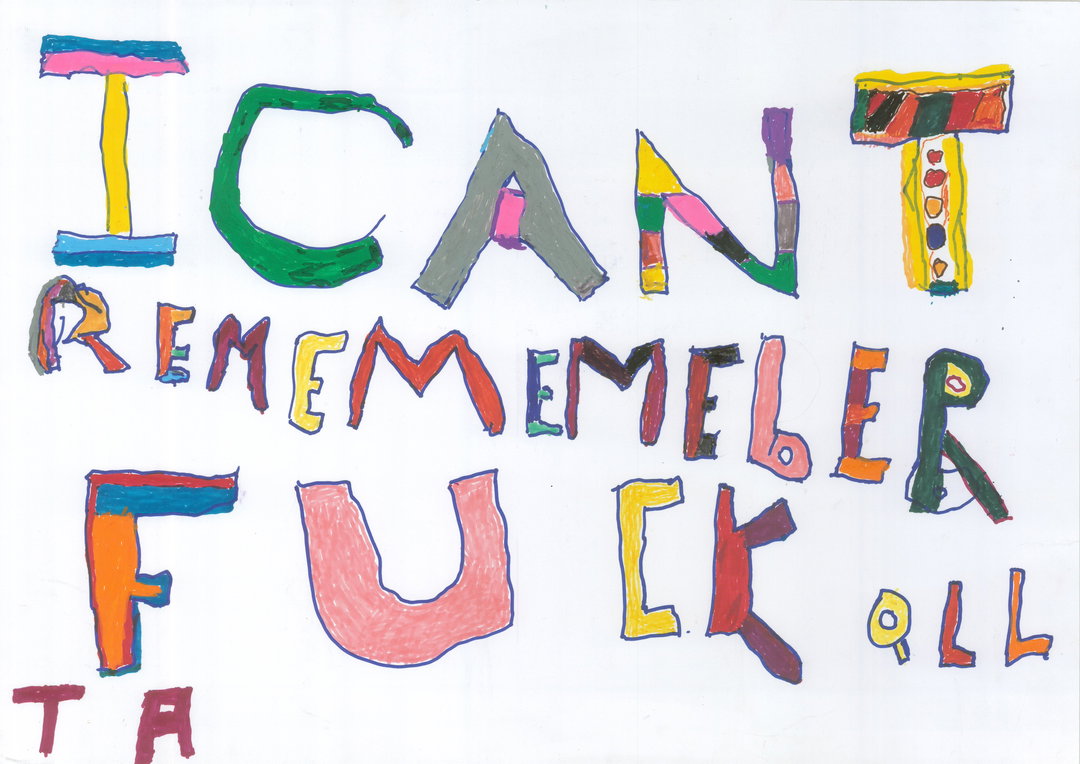 I CANT
REMEMEMEbER
FUCK aLL
TA